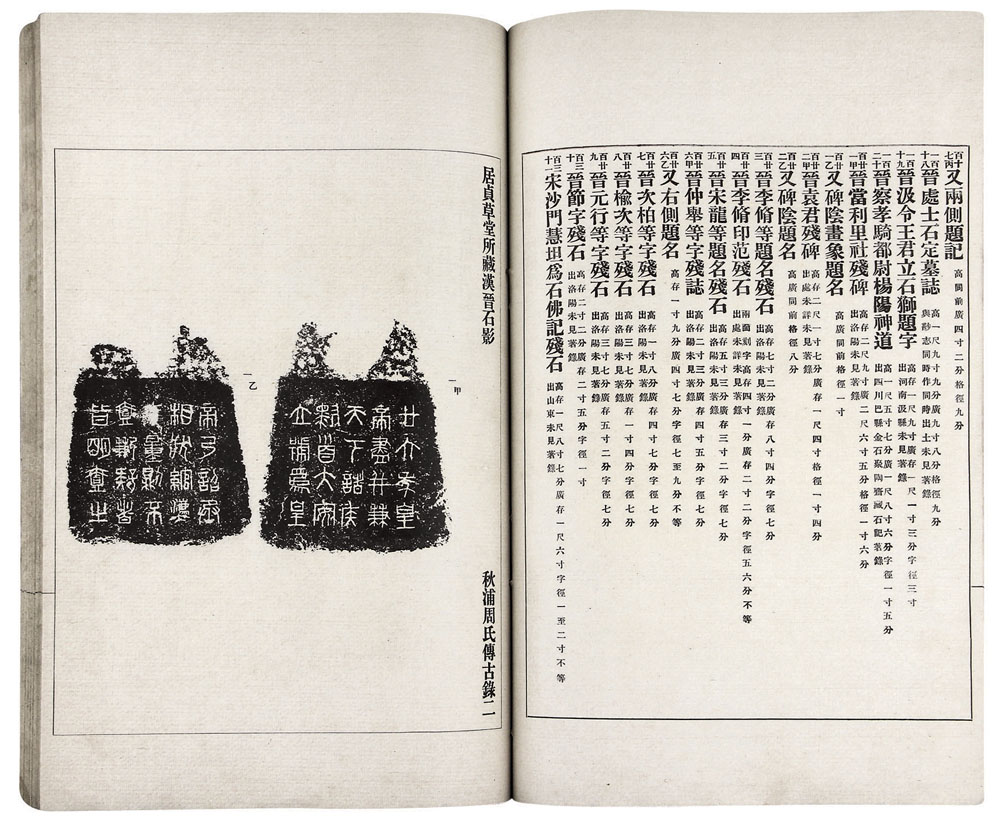 百十七丙 又兩側題記 高闊前廣四寸二分格徑九分
一百十八 晉處士石定墓誌 高一尺九寸九分廣九寸八分格徑九分 與尠志同時作同時出土未見著錄
一百十九 晉汲令王君立石獅題字 高存一尺九寸廣存一尺一寸三分字徑三寸 出河南汲縣未見著錄
一百二十 晉察孝騎都尉楊陽神道 高一尺五寸七分廣一尺八寸六分字徑一寸五分 出四川巴縣金石聚陶齋藏石記著錄
百廿一甲 晉當利里社殘碑 高存二尺九寸廣二尺六寸五分格徑一寸六分 出洛陽未見著錄
百廿一乙 又碑陰畫象題名 高廣同前格徑一寸
百廿二甲 晉袁君殘碑 高存二尺一寸七分廣存一尺四寸格徑一寸四分 出處未詳未見著錄
百廿二乙 又碑陰題名 高廣同前格徑八分
百廿三 晉李脩等題名殘石 高存七寸二分廣存八寸四分字徑七分 出洛陽未見著錄
百廿四 晉李脩印范殘石 兩面刻字高存四寸一分廣存二寸二分字徑五六分不等 出處未詳未見著錄
百廿五 晉宋龍等題名殘石 高存五寸三分廣存三寸二分字徑七分 出洛陽未見著錄
百廿六甲 晉仲舉等字殘誌 高存二寸三分廣存四寸三分字徑七分 出洛陽未見著錄
百廿六乙 又右側題名 高存一寸九分廣四寸七分字徑七至九分不等
百廿七 晉次柏等字殘石 高存一寸八分廣存四寸七分字徑七分 出洛陽未見著錄
百廿八 晉榆次等字殘石 高存三寸一分廣存四寸二分字徑七分 出洛陽未見著錄
百廿九 晉元行等字殘石 高存三寸七分廣存五寸二分字徑七分 出洛陽未見著錄
百三十 晉節字殘石 高存二寸廣存二寸五分字徑一寸 出洛陽未見著錄
百三十一 宋沙門慧坦為石佛記殘石 高存一尺八寸七分廣存一尺六寸字徑一至二寸不等 出山東未見著錄
居貞草堂所藏漢晉石影
秋浦周氏傳古錄二
一甲
廿六年皇
帝盡并兼
天下諸侯
黔首大安
立號為皇
一乙
帝乃詔丞
相狀綰灋
度量則不
壹歉疑者
皆明壹之